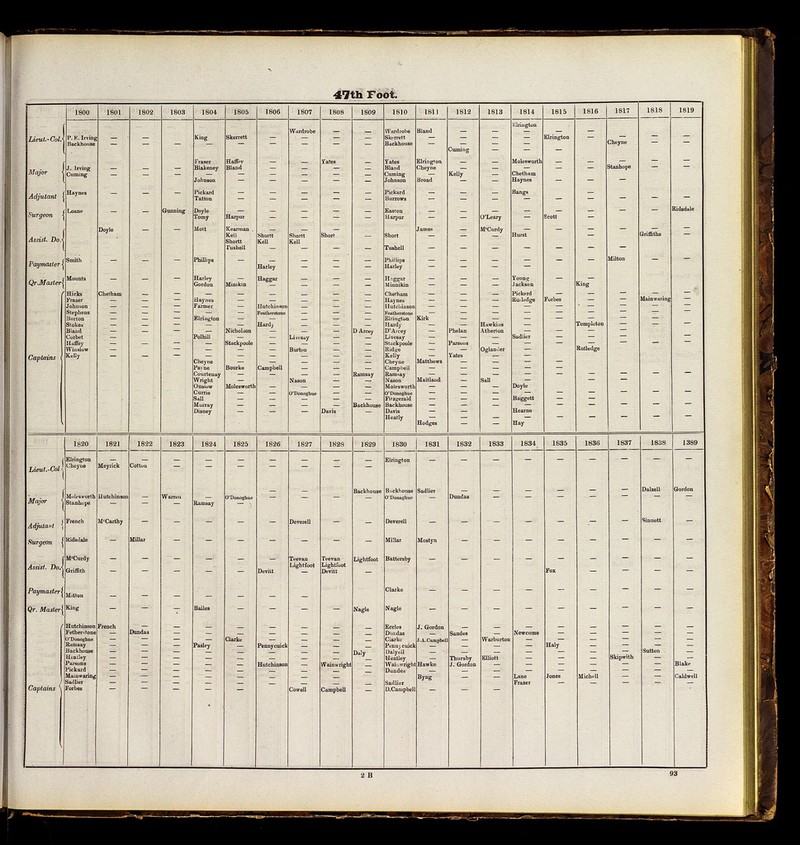 47th Foot.
1800 1801 1802 1803 1804 1805 1806 1807 1808 1809 1810 1811 1812 1813 1814 1815 1816 1817 1818 1819
Elrington
Wardrobe — — Wardrobe Bland — — — — — — — —
Lieut.-Col. P. E. Irving — — King Skerrett — — — — Skerrett — — — — Elrington — — — —
Backhouse — — — — — — — — Backhouse — — — — — — Cheyne — —
Cuming — — —
Fraser Haffey — — Yates — Yates Elrington — — Molesworth — — — — —
Major J. Irving — — — Blakeney Bland — — — — Bland Cheyne — — — — — Stanhope — —
Cuming — — — — — — — — — Cuming — Kelly — Chetham — — — — —
Johnson — — — — — Johnson Broad — — Haynes — — — — —
Adjutant Haynes — — — Pickard — — — — — Pickard — — — Bangs — — — — —
Tatton — — — — — Burrows — — —
Surgeon Loane — — Gunning Doyle — — — — — Easton — — — — — — — — Ridsdale
Tomy Harpur — — — — Harpur — — O'Leary — Scott — — — —
Assist. Do. Doyle — — Mott Kearnan — — — — James — M'Curdy — — — — — —
Kell Shortt Shortt Short — Short — — — Hurst — — — Griffiths —
Shortt Kell Kell
Tushell — — — — Tushell — — — — — — —
Paymaster Smith — — — Phillips — — — — — Phillips — — — — — — Milton — —
Harley — — — Harley — — —
Qr. Master Mounts — — — Harley Haggar — — — — Haggar — — — Young —
Gordon Minskin — — — — Minnikin — — — Jackson — King — — —
Captains Hicks Chetham — — — — — — — — Chetham — — — Pickard — — — — —
Fraser — — — Haynes — — — — — Haynes — — — Rutledge Forbes — — Mainwaring —
Johnson — — — Farmer — Hutchinson — — — Hutchinson — — — — — — — — —
Stephens — — — — — Featherstone — — — Featherstone — — — — — — — — —
Burton — — — Elrington — — — — — Elrington Kirk — — — — — — — —
Stokes — — — — — Hardy — — — Hardy — — Hawkins — — Templeton — — —
Bland — — — — Nicholson — — — D'Arcey D'Arcey — Phelan Atherton — — — — — —
Corbet — — — Polhill — — Livesay — — Livesay — — — Sadlier — — — — —
Haffey — — — — Stackpoole — — — — Stackpoole — Parsons — — — — — — —
Winslow — — — — — — Burton — — Ridge — — Oglander — — Rutledge — — —
Kelly — — — — — — — — — Kelly — Yates — — — — — — —
Cheyne — — — — — Cheyne Matthews — — — — — — — —
Payne Bourke Campbell — — — Campbell — — — — — — — — —
Courtenay — — — — Ramsay Ramsay — — — — — — — — —
Wright — — Nason — — Nason Maitland — Sall — — — — — —
Onslow Molesworth — — — — Molesworth — — — Doyle — — — — —
Currie — — O'Donoghue — — O'Donoghue — — — — — — — — —
Sall — — — — — Fitzgerald — — — Baggett — — — — —
Murray — — — — Backhouse Backhouse — — — — — — — — —
Disney — — — Davis — Davis — — — Hearne — — — — —
Heatly — — — — —
Hodges — — Hay — — — — —
1820 1821 1822 1823 1824 1825 1826 1827 1828 1829 1830 1831 1832 1833 1834 1835 1836 1837 1838 1389
Lieut.-Col. Elrington — — — — — — — — — Elrington — — — — — — — — —
Cheyne Meyrick Cotton — — — — — — —
Backhouse Backhouse Sadlier — — — — — — Dalzell Gordon
Major Molesworth Hutchinson — Warren — O'Donoghue — — — — O'Donoghue — Dundas — — — — — — —
Stanhope — — — Ramsay —
Adjutant French M'Carthy — — — — — Deverell — — Deverell — — — — — — — Sinnott —
Surgeon Ridsdale — Millar — — — — — — — Millar Mostyn — — — — — — — —
Assist. Do. M'Curdy — — — — — — Teevan Teevan Lightfoot Battersby — — — — — — — — —
Lightfoot Lightfoot
Griffith — — — — — Devitt — Devitt — Fox — — — —
Paymaster Mitton — — — — — — — — — Clarke — — — — — — — — —
Qr. Master King — — — Bailes — — — — Nagle Nagle — — — — — — — — —
Captains Hutchinson French — — — — — — — — Eccles J. Gordon — — — — — — — —
Fetherstone — Dundas — — — — — — — Dundas — Sandes — Newcome — — — — —
O'Donoghue — — — — Clarke — — — — Clarke J.A.Campbell — Warburton — — — — — —
Ramsay — — — Pasley — Pennycuick — — — Pennycuick — — — — Haly — — — —
Backhouse — — — — — — — — Daly Dalyell — — — — — — — Sutton —
Heatley — — — — — — — — — Heatley — Thursby Elliott — — — Skipwith — —
Parsons — — — — — Hutchinson — Wainwright — Wainwright Hawke J. Gordon — — — — — — Blake
Pickard — — — — — — — — — Dundee — — — — — — — — —
Mainwaring — — — — — — — — — Byng — — Lane Jones Michell — — Caldwell
Sadlier — — — — — — — — — Sadlier — — — Fraser — — — — —
Forbes — — — — — — Cowell Campbell — D.Campbell — — —
2 B
93